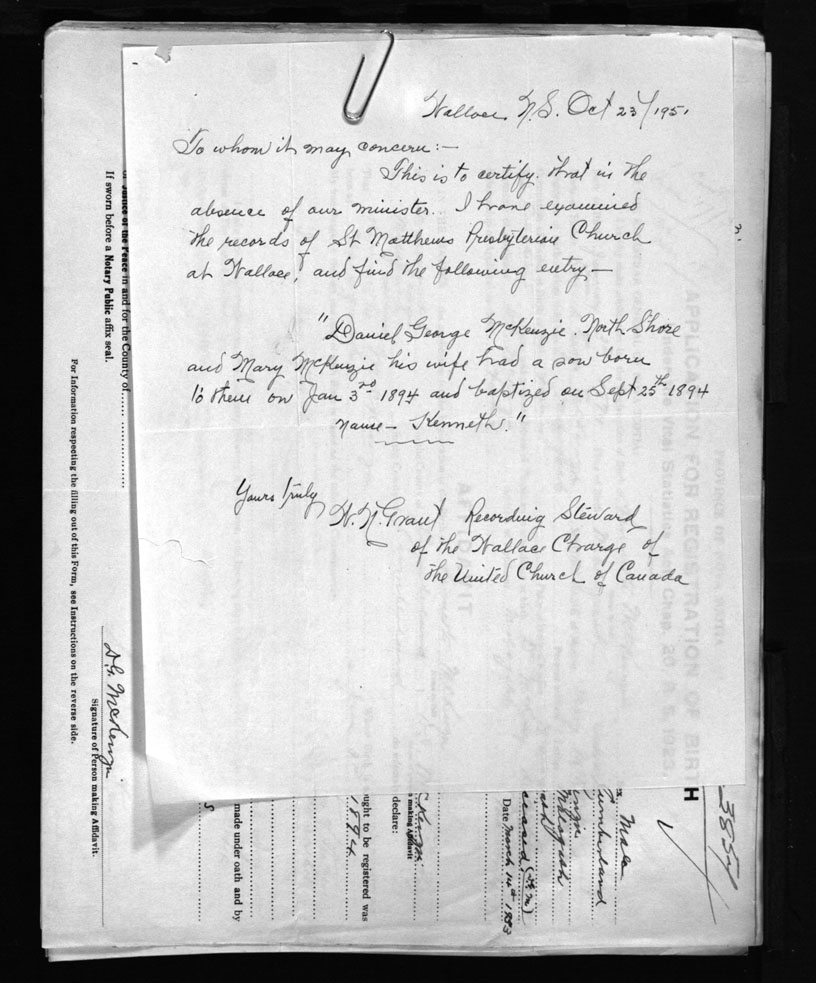 Wallace N.S. Oct 23/1951
To whom it may concern:-
This is to certify that in the
absence of our minister. I have examined
the records of St Matthews Presbyterian Church
at Wallace, and find the following entry-
"Daniel George McKenzie. North Shore
and Mary McKenzie his wife had a son born
to them on Jan 3rd 1894 and baptized on Sept 25th 1894
name - Kenneth."
Yours truly
H. N. Grant Recording Steward
of the Wallace Charge of
the United Church of Canada
in and for the County of
If sworn before a Notary Public affix seal.
For Information respecting the filling out of this Form, see Instructions on the reverse side.
D G McKenzie
Signature of Person making Affidavit.
made under oath and by
ought to be registered was
1894
declare:
making Affidavit
Date March 14th
Male
APPLICATION FOR REGISTRATION OF BIRTH
Chap. 20 R S 1923